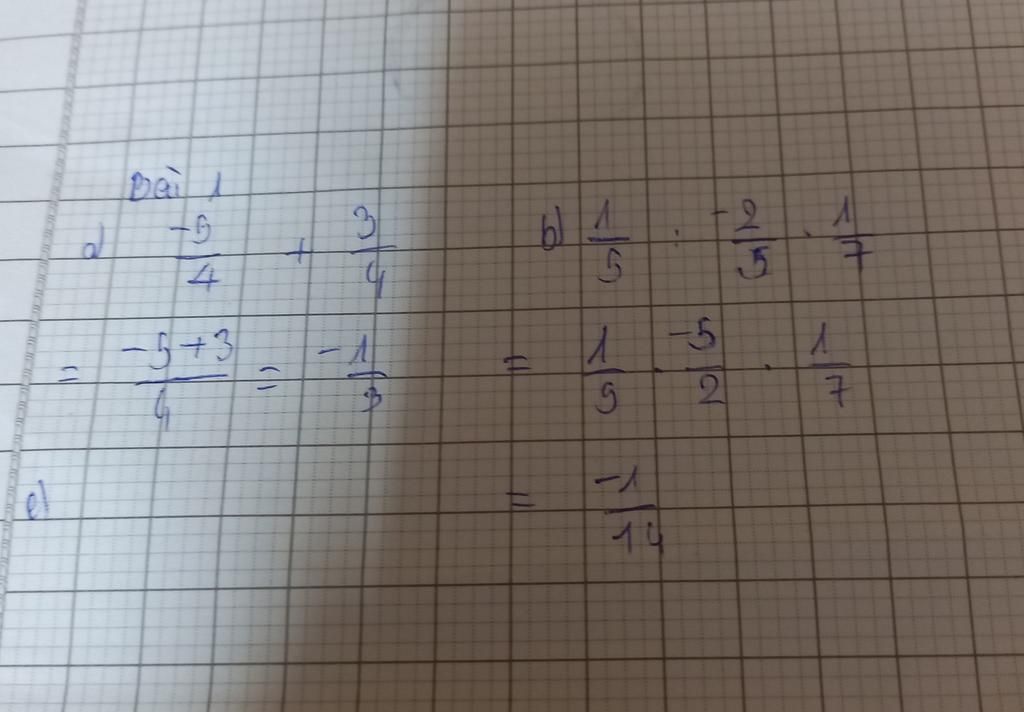 Bài 1
a) -5/4 + 3/4
= -5+3/4 = -1/3
b) 1/5 : -2/5 . 1/7
= 1/5 . -5/2 . 1/7
= -1/14
c)